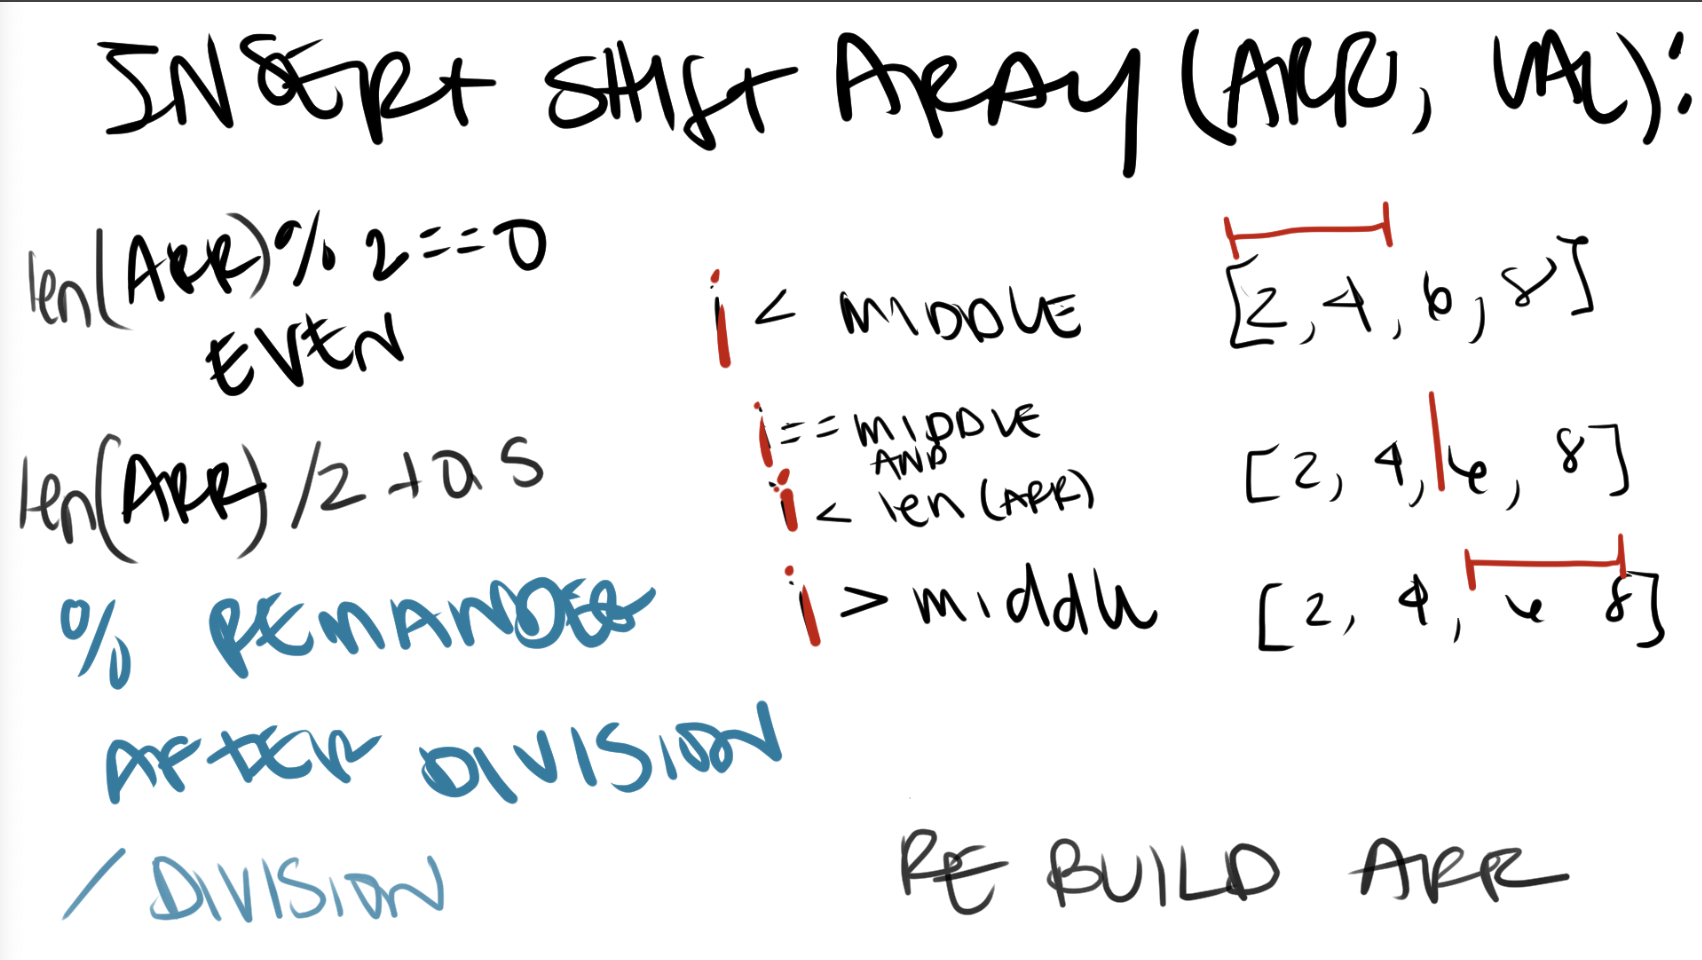 INSERt SHIft ARRAY (ARR, VAL):
len(ARR) % 2 == 0
EVEN
len(ARR) /2 + 0.5
% REMANDER
AFTER DIVISION
/ DIVISION
i < MIDDLE
i == MIDDLE
AND
i < len (ARR)
i > middle
[2, 4, 6, 8]
[2, 4, 6, 8]
[2, 4, 6 8]
RE BUILD ARR